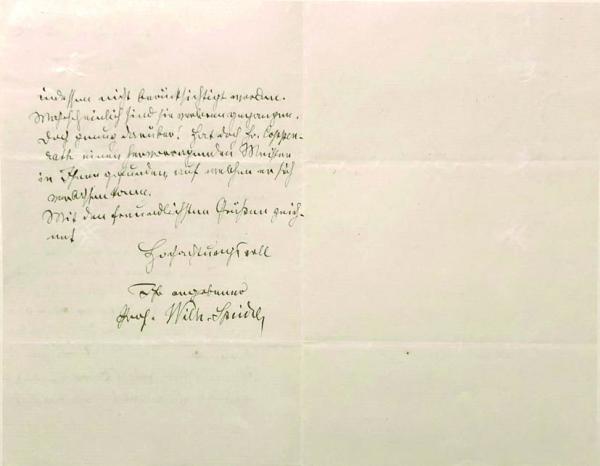 indessen nicht berücksichtigt worden.
Wahrscheinlich sind sie verloren gegangen.
Doch genug darüber! Hat doch Hr. Coppen-
rath einen hervorragenden Meister
in Ihnen gefunden, auf welchen er sich
verlassen kann.
Mit den freundlichsten Grüßen zeich-
net
Hochachtungsvoll
Ihr ergebener
Prof. Wilh. Speidel